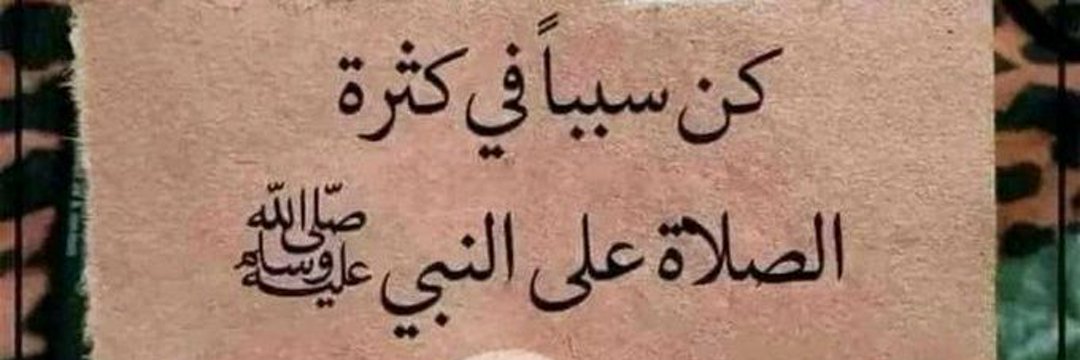 كن سبباً في كثرة
الصلاة على النبي ﷺ